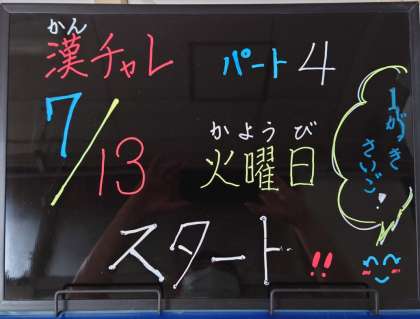 かん
漢チャレ パート4
7/13
かようび
火曜日
スタート!!
1がっき
さいご!